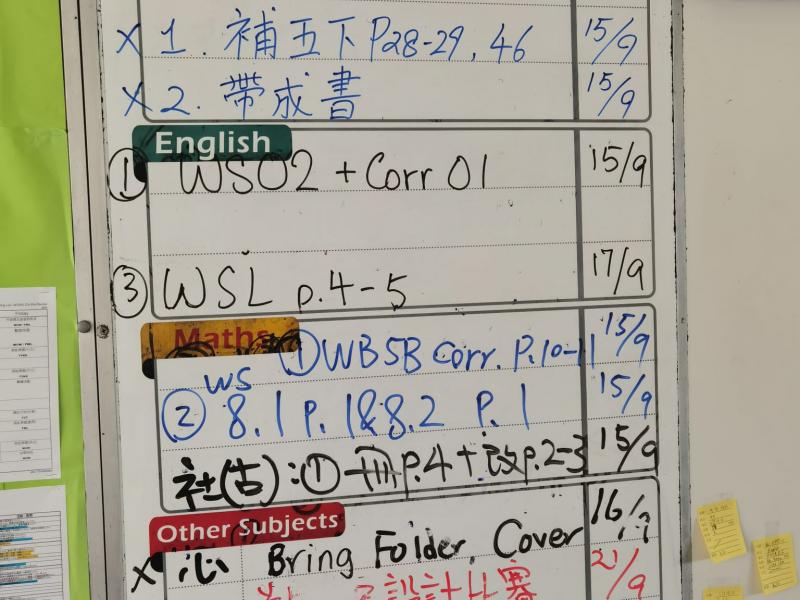 x 1. 補五下 P28-29, 46 15/9
x 2. 帶成書 15/9
English
① WS02 + Corr 01 15/9
③ WSL p.4-5 17/9
Maths
① WB5B Corr. P.10-11 15/9
② WS 8.1 p.1 & 8.2 P.1 15/9
社(古):① p.4 + 改p.2-3 15/9
Other Subjects
x 心 Bring Folder, Cover 16/9
設計比賽 21/9